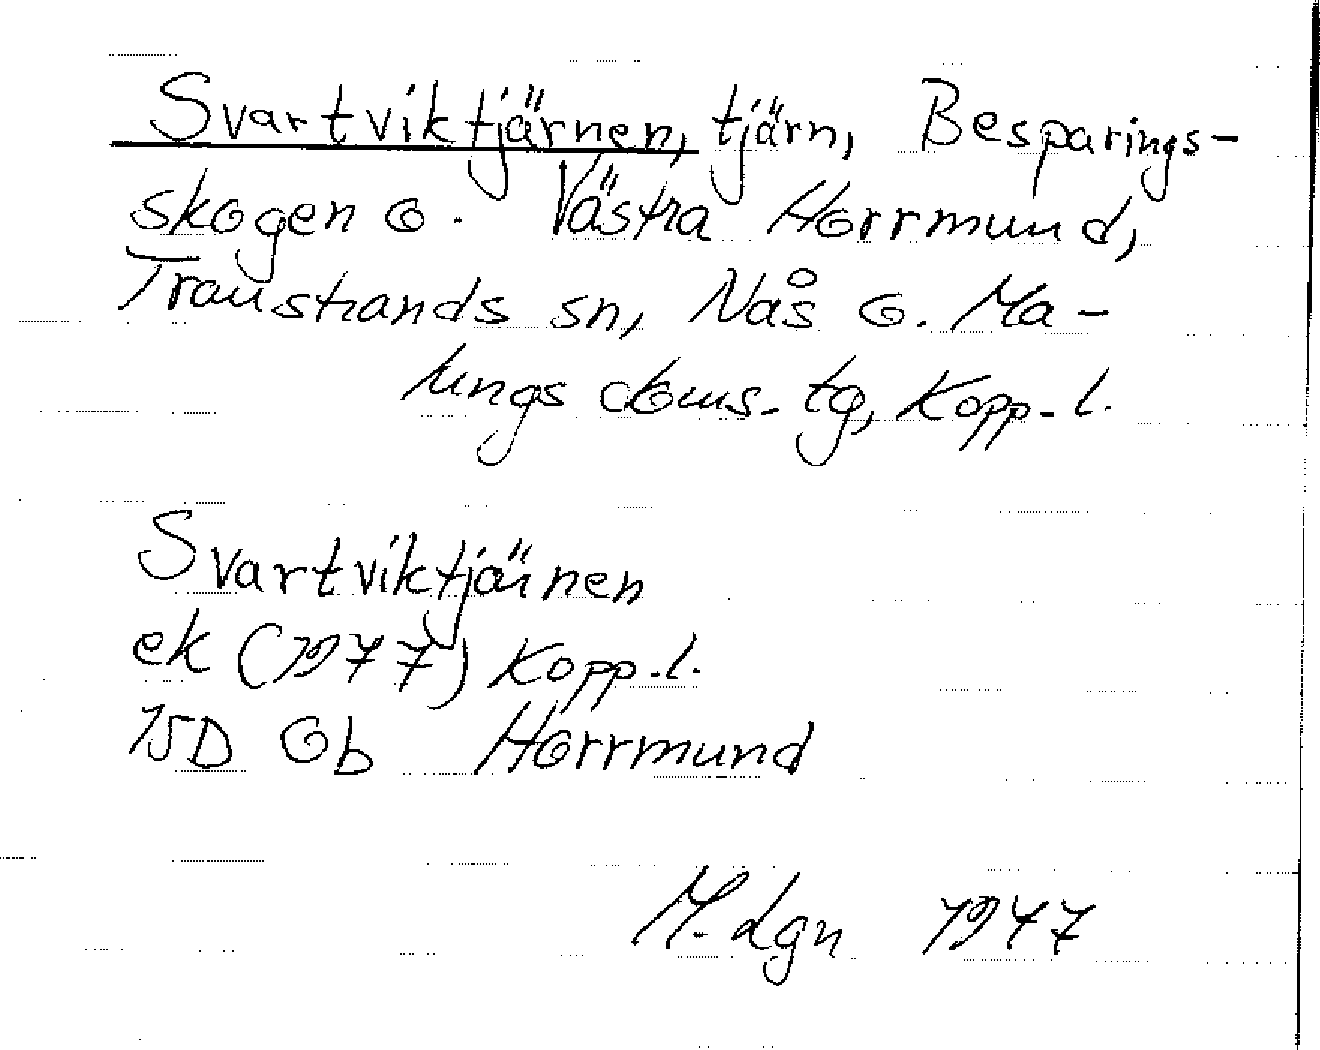 Svartviktjärnen, tjärn, Besparings-
skogen o. Västra Horrmund,
Transtrands sn, Nås o. Ma-
lungs doms. tg, Kopp. l.
Svartviktjärnen
ek (1977) Kopp. l.
15D Ob Horrmund
M. Lgn 1947